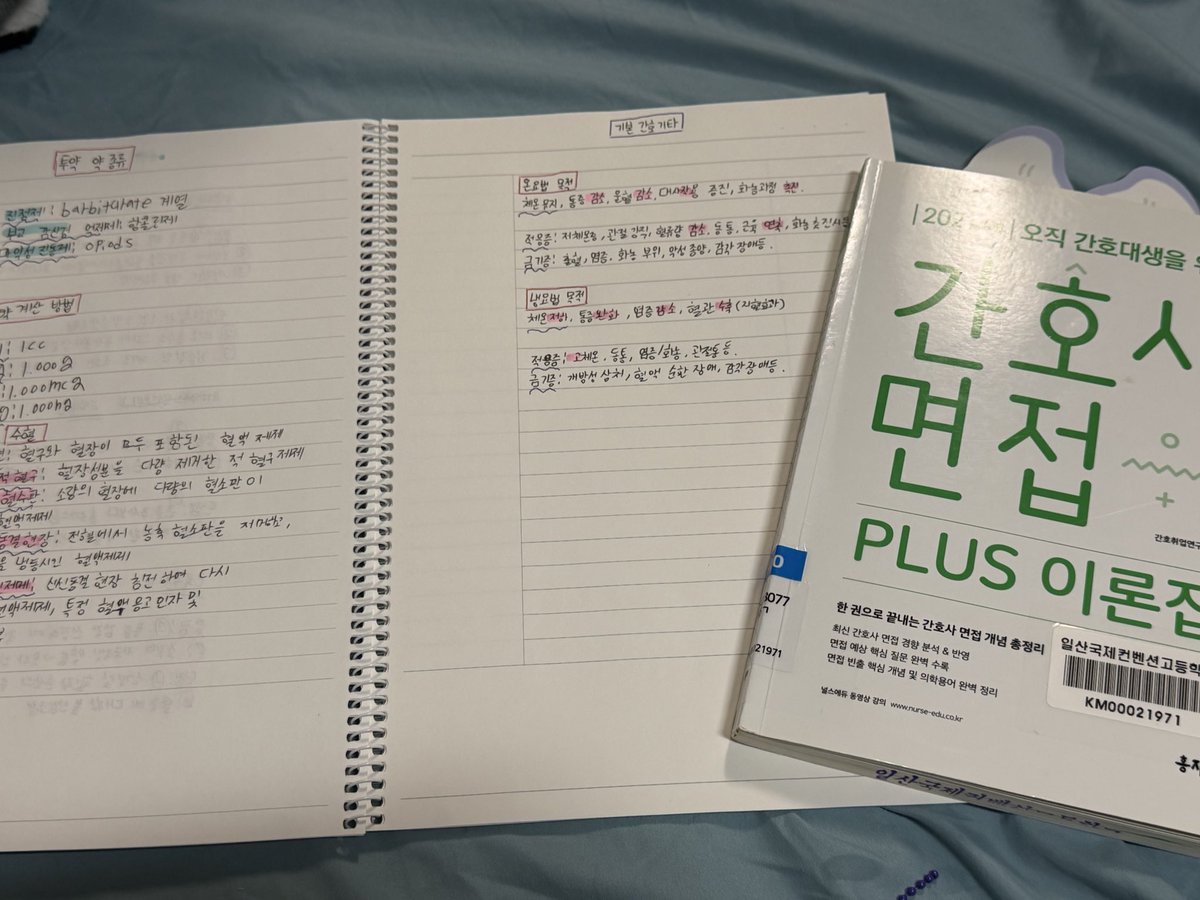 투약 약 종류
진정제: barbiturate 계열
억제제, 항콜린제
마약성 진통제: opiods
약 계산 방법
1cc
1.000g
1.000mcg
1.000ng
수혈
혈구와 혈장이 모두 포함된 혈액 제제
적혈구: 혈장성분을 다량 제거한 적혈구제제
혈소판: 소량의 혈장에 다량의 혈소판이
혈액제제
동결혈장: 전혈에서 농축 혈소판을
냉동시킨 혈액제제
신선동결 혈장 하여 다시
혈액제제, 특정 혈액 응고인자 및
기본 간호 기타
온요법 목적
체온유지, 통증 감소, 울혈 감소, 대사작용 증진, 화농과정 촉진.
적용증: 저체온증, 관절 강직, 혈류량 감소, 동통, 근육 연축, 화농
금기증: 출혈, 염증, 화농 부위, 악성 종양, 감각 장애등.
냉요법 목적
체온저하, 통증완화, 염증감소, 혈관 수축 (지혈효과)
적용증: 고체온, 동통, 염증/화농, 관절통 등.
금기증: 개방성 상처, 혈액 순환 장애, 감각장애등.
오직 간호대생을
간호사
면접
간호취업연구
PLUS 이론집
한 권으로 끝내는 간호사 면접 개념 총정리
최신 간호사 면접 경향 분석 & 반영
면접 예상 핵심 질문 완벽 수록
면접 빈출 핵심 개념 및 의학용어 완벽 정리
널스에듀 동영상 강의 www.nurse-edu.co.kr
일산국제컨벤션고등학
KM00021971
21971